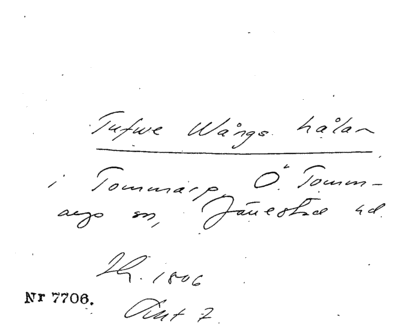 Tufwe Wångs hålan
i Tommarp, Ö. Tomm-
arps sn, Järrestad hd
Lh. 1806
Akt 7
Nr 7706.